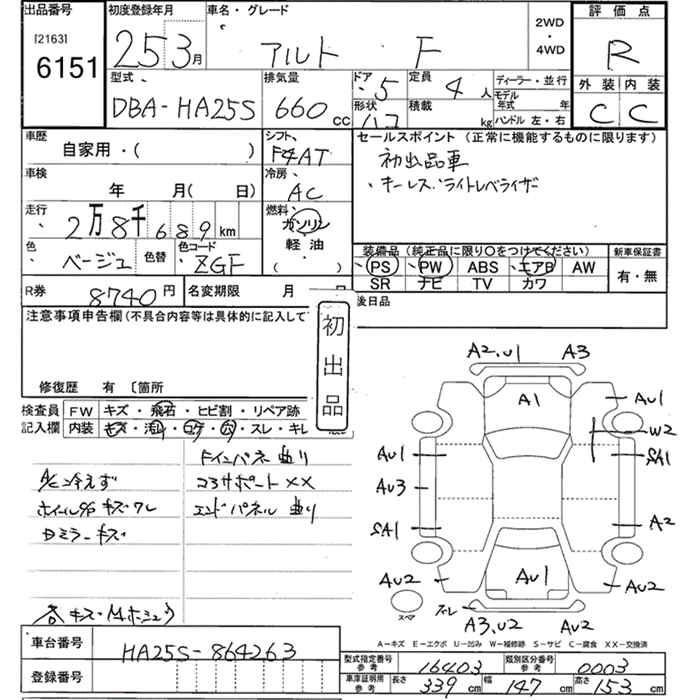 出品番号
[2163]
6151
初度登録年月
25 3月
車名・グレード
アルト F
2WD
・
4WD
評価点
R
型式
DBA-HA25S
排気量
660 cc
ドア
5
定員
4人
形状
積載
kg
ディーラー・並行
モデル年式 年
ハンドル 左・右
外装 内装
C C
車歴
自家用・( )
シフト
F4AT
セールスポイント(正常に機能するものに限ります)
初出品車
・キーレス・ライトレベライザ
車検
年 月( 日)
冷房
AC
走行
2万8千689km
燃料
ガソリン
軽油
( )
色
ベージュ
色替
色コード
ZGF
装備品(純正品に限り○をつけてください)
PS PW ABS エアB AW
SR ナビ TV カワ
新車保証書
有・無
R券
8740円
名変期限 月 日
後日品
注意事項申告欄(不具合内容等は具体的に記入して
修復歴 有 〔箇所
初出品
検査員記入欄
FW キズ・飛石・ヒビ割・リペア跡
内装 キズ・汚れ・コゲ・穴・スレ・キレ
A/C冷えず
ホイールC キズ ワレ
Dミラーキズ
F インパネ 曲り
コアサポート XX
エンドパネル 曲り
A2.U1 A3
A1
AU1
W2
AU1
SA1
AU3
SA1
A2
AU2
AU1
AU2
スペア
A3.U2 AU2
A-キズ E-エクボ U-凹み W-補修跡 S-サビ C-腐食 XX-交換済
車台番号
HA25S-864263
登録番号
型式指定番号 参考
16403
類別区分番号 参考
0003
車庫証明用 参考
長さ 339cm
幅 147cm
高さ 153cm